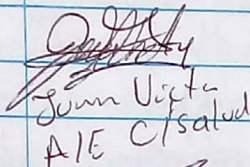 Juan Victa
A/E C/salud